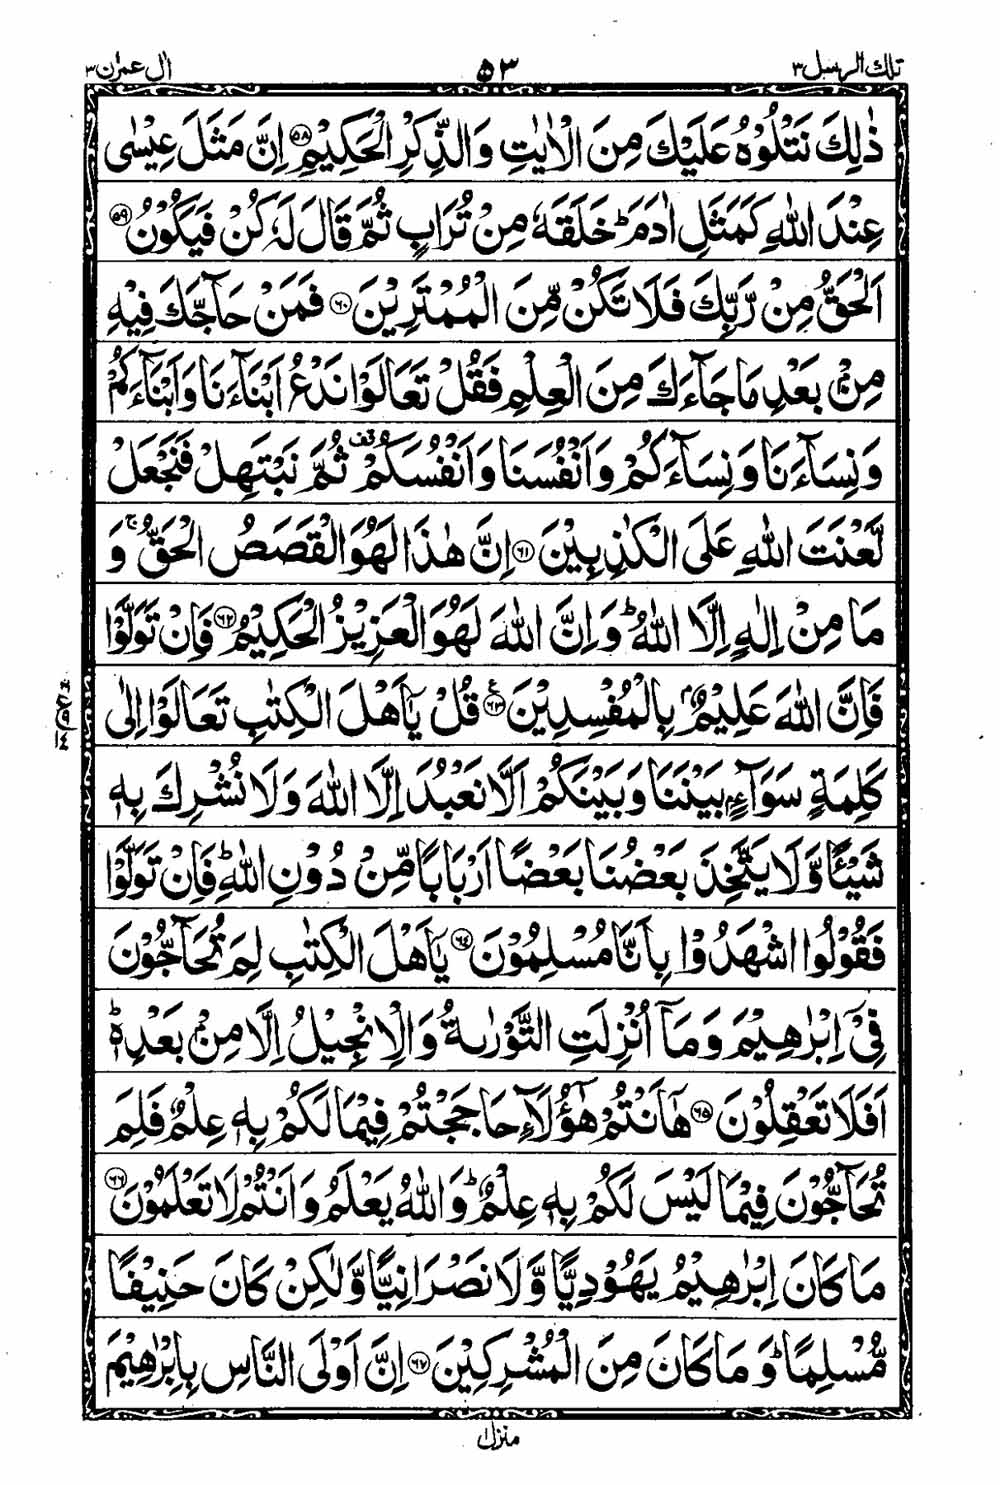 تلك الرسل ۳
۵۳
اٰل عمرٰن ۳
ذٰلِكَ نَتْلُوْهُ عَلَيْكَ مِنَ الْاٰيٰتِ وَالذِّكْرِ الْحَكِيْمِ ﴿۵۸﴾ اِنَّ مَثَلَ عِيْسٰى
عِنْدَ اللّٰهِ كَمَثَلِ اٰدَمَ ؕ خَلَقَهٗ مِنْ تُرَابٍ ثُمَّ قَالَ لَهٗ كُنْ فَيَكُوْنُ ﴿۵۹﴾
اَلْحَقُّ مِنْ رَّبِّكَ فَلَا تَكُنْ مِّنَ الْمُمْتَرِيْنَ ﴿۶۰﴾ فَمَنْ حَآجَّكَ فِيْهِ
مِنْۢ بَعْدِ مَا جَآءَكَ مِنَ الْعِلْمِ فَقُلْ تَعَالَوْا نَدْعُ اَبْنَآءَنَا وَاَبْنَآءَكُمْ
وَنِسَآءَنَا وَنِسَآءَكُمْ وَاَنْفُسَنَا وَاَنْفُسَكُمْ قف ثُمَّ نَبْتَهِلْ فَنَجْعَلْ
لَّعْنَتَ اللّٰهِ عَلَى الْكٰذِبِيْنَ ﴿۶۱﴾ اِنَّ هٰذَا لَهُوَ الْقَصَصُ الْحَقُّ ۚ وَ
مَا مِنْ اِلٰهٍ اِلَّا اللّٰهُ ؕ وَاِنَّ اللّٰهَ لَهُوَ الْعَزِيْزُ الْحَكِيْمُ ﴿۶۲﴾ فَاِنْ تَوَلَّوْا
فَاِنَّ اللّٰهَ عَلِيْمٌۢ بِالْمُفْسِدِيْنَ ﴿۶۳﴾ ع قُلْ يٰۤاَهْلَ الْكِتٰبِ تَعَالَوْا اِلٰى
كَلِمَةٍ سَوَآءٍۢ بَيْنَنَا وَبَيْنَكُمْ اَلَّا نَعْبُدَ اِلَّا اللّٰهَ وَلَا نُشْرِكَ بِهٖ
شَيْـًٔا وَّلَا يَتَّخِذَ بَعْضُنَا بَعْضًا اَرْبَابًا مِّنْ دُوْنِ اللّٰهِ ؕ فَاِنْ تَوَلَّوْا
فَقُوْلُوا اشْهَدُوْا بِاَنَّا مُسْلِمُوْنَ ﴿۶۴﴾ يٰۤاَهْلَ الْكِتٰبِ لِمَ تُحَآجُّوْنَ
فِيْۤ اِبْرٰهِيْمَ وَمَاۤ اُنْزِلَتِ التَّوْرٰىةُ وَالْاِنْجِيْلُ اِلَّا مِنْۢ بَعْدِهٖ ؕ
اَفَلَا تَعْقِلُوْنَ ﴿۶۵﴾ هٰۤاَنْتُمْ هٰۤؤُلَآءِ حَاجَجْتُمْ فِيْمَا لَكُمْ بِهٖ عِلْمٌ فَلِمَ
تُحَآجُّوْنَ فِيْمَا لَيْسَ لَكُمْ بِهٖ عِلْمٌ ؕ وَاللّٰهُ يَعْلَمُ وَاَنْتُمْ لَا تَعْلَمُوْنَ ﴿۶۶﴾
مَا كَانَ اِبْرٰهِيْمُ يَهُوْدِيًّا وَّلَا نَصْرَانِيًّا وَّلٰكِنْ كَانَ حَنِيْفًا
مُّسْلِمًا ؕ وَمَا كَانَ مِنَ الْمُشْرِكِيْنَ ﴿۶۷﴾ اِنَّ اَوْلَى النَّاسِ بِاِبْرٰهِيْمَ
منزل ۱